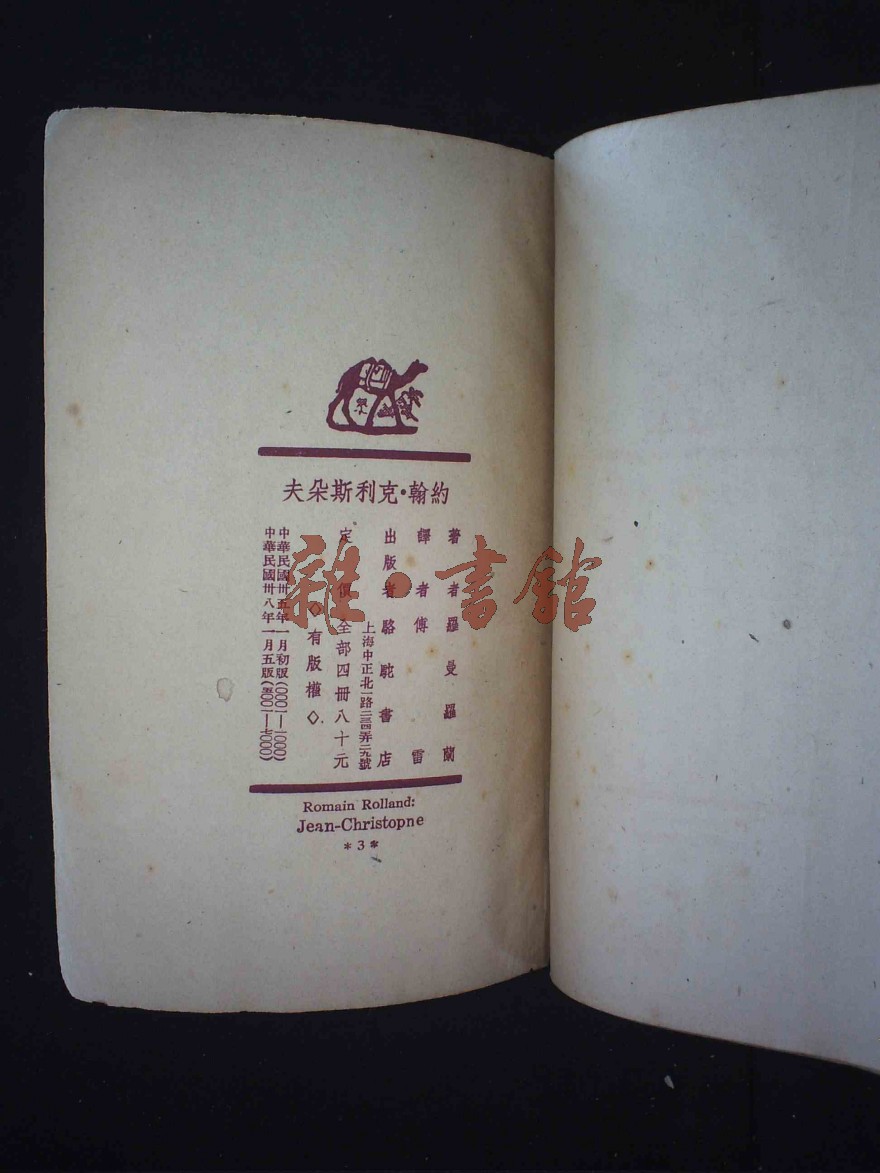 約翰·克利斯朵夫
著者 羅曼羅蘭
譯者 傅雷
出版者 駱駝書店
上海中正北一路二四弄二九號
定價 全部四冊八十元
◇有版權◇
中華民國卅五年一月初版(000一—一000)
中華民國卅八年一月五版(五00一—七000)
Romain Rolland:
Jean-Christopne
*3*
雜·書館